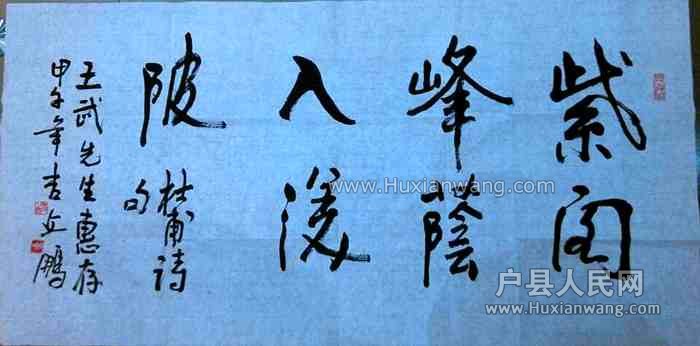 紫阁
峰蔭
入渼
陂 杜甫诗
句
王武先生惠存
甲午年
www.Huxianwang.com
户县人民网
www.Huxianwang.com